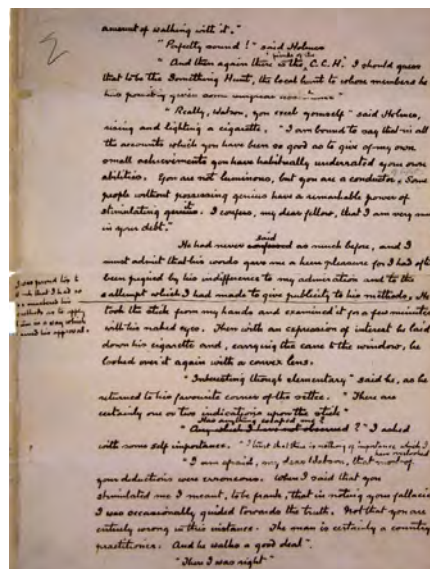 2
amount of walking with it."
"Perfectly sound!" said Holmes
"And then again there is the C.C.H. I should guess
that to be the Something Hunt, the local hunt to whose members he
has possibly given some surgical assistance"
"Really, Watson, you excel yourself" said Holmes,
rising and lighting a cigarette. "I am bound to say that in all
the accounts which you have been so good as to give of my own
small achievements you have habitually underrated your own
abilities. You are not luminous, but you are a conductor. Some
people without possessing genius have a remarkable power of
stimulating genius. I confess, my dear fellow, that I am very mu
in your debt."
said
He had never as much before, and I
must admit that his words gave me a keen pleasure for I had oft
been piqued by his indifference to my admiration and to the
attempt which I had made to give publicity to his methods. He
I was proud too to
think that I had so
mastered his
methods as to apply
him in a way which
earned his approval.
took the stick from my hands and examined it for a few minutes
with his naked eyes. Then with an expression of interest he laid
down his cigarette and, carrying the cane to the window, he
looked over it again with a convex lens.
"Interesting though elementary" said he, as he
returned to his favourite corner of the settee. "There are
certainly one or two indications upon the stick"
Has anything escaped me?"
"Any which I have not observed?" I asked
with some self importance. "I trust that there is nothing of importance which I
have overlooked
"I am afraid, my dear Watson, that most of
your deductions were erroneous. When I said that you
stimulated me I meant, to be frank, that in noting your fallacies
I was occasionally guided towards the truth. Not that you are
entirely wrong in this instance. The man is certainly a country
practitioner. And he walks a good deal".
"Then I was right"